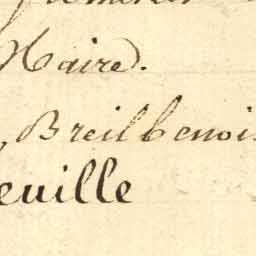 Maire.
, Breilbenois
euille